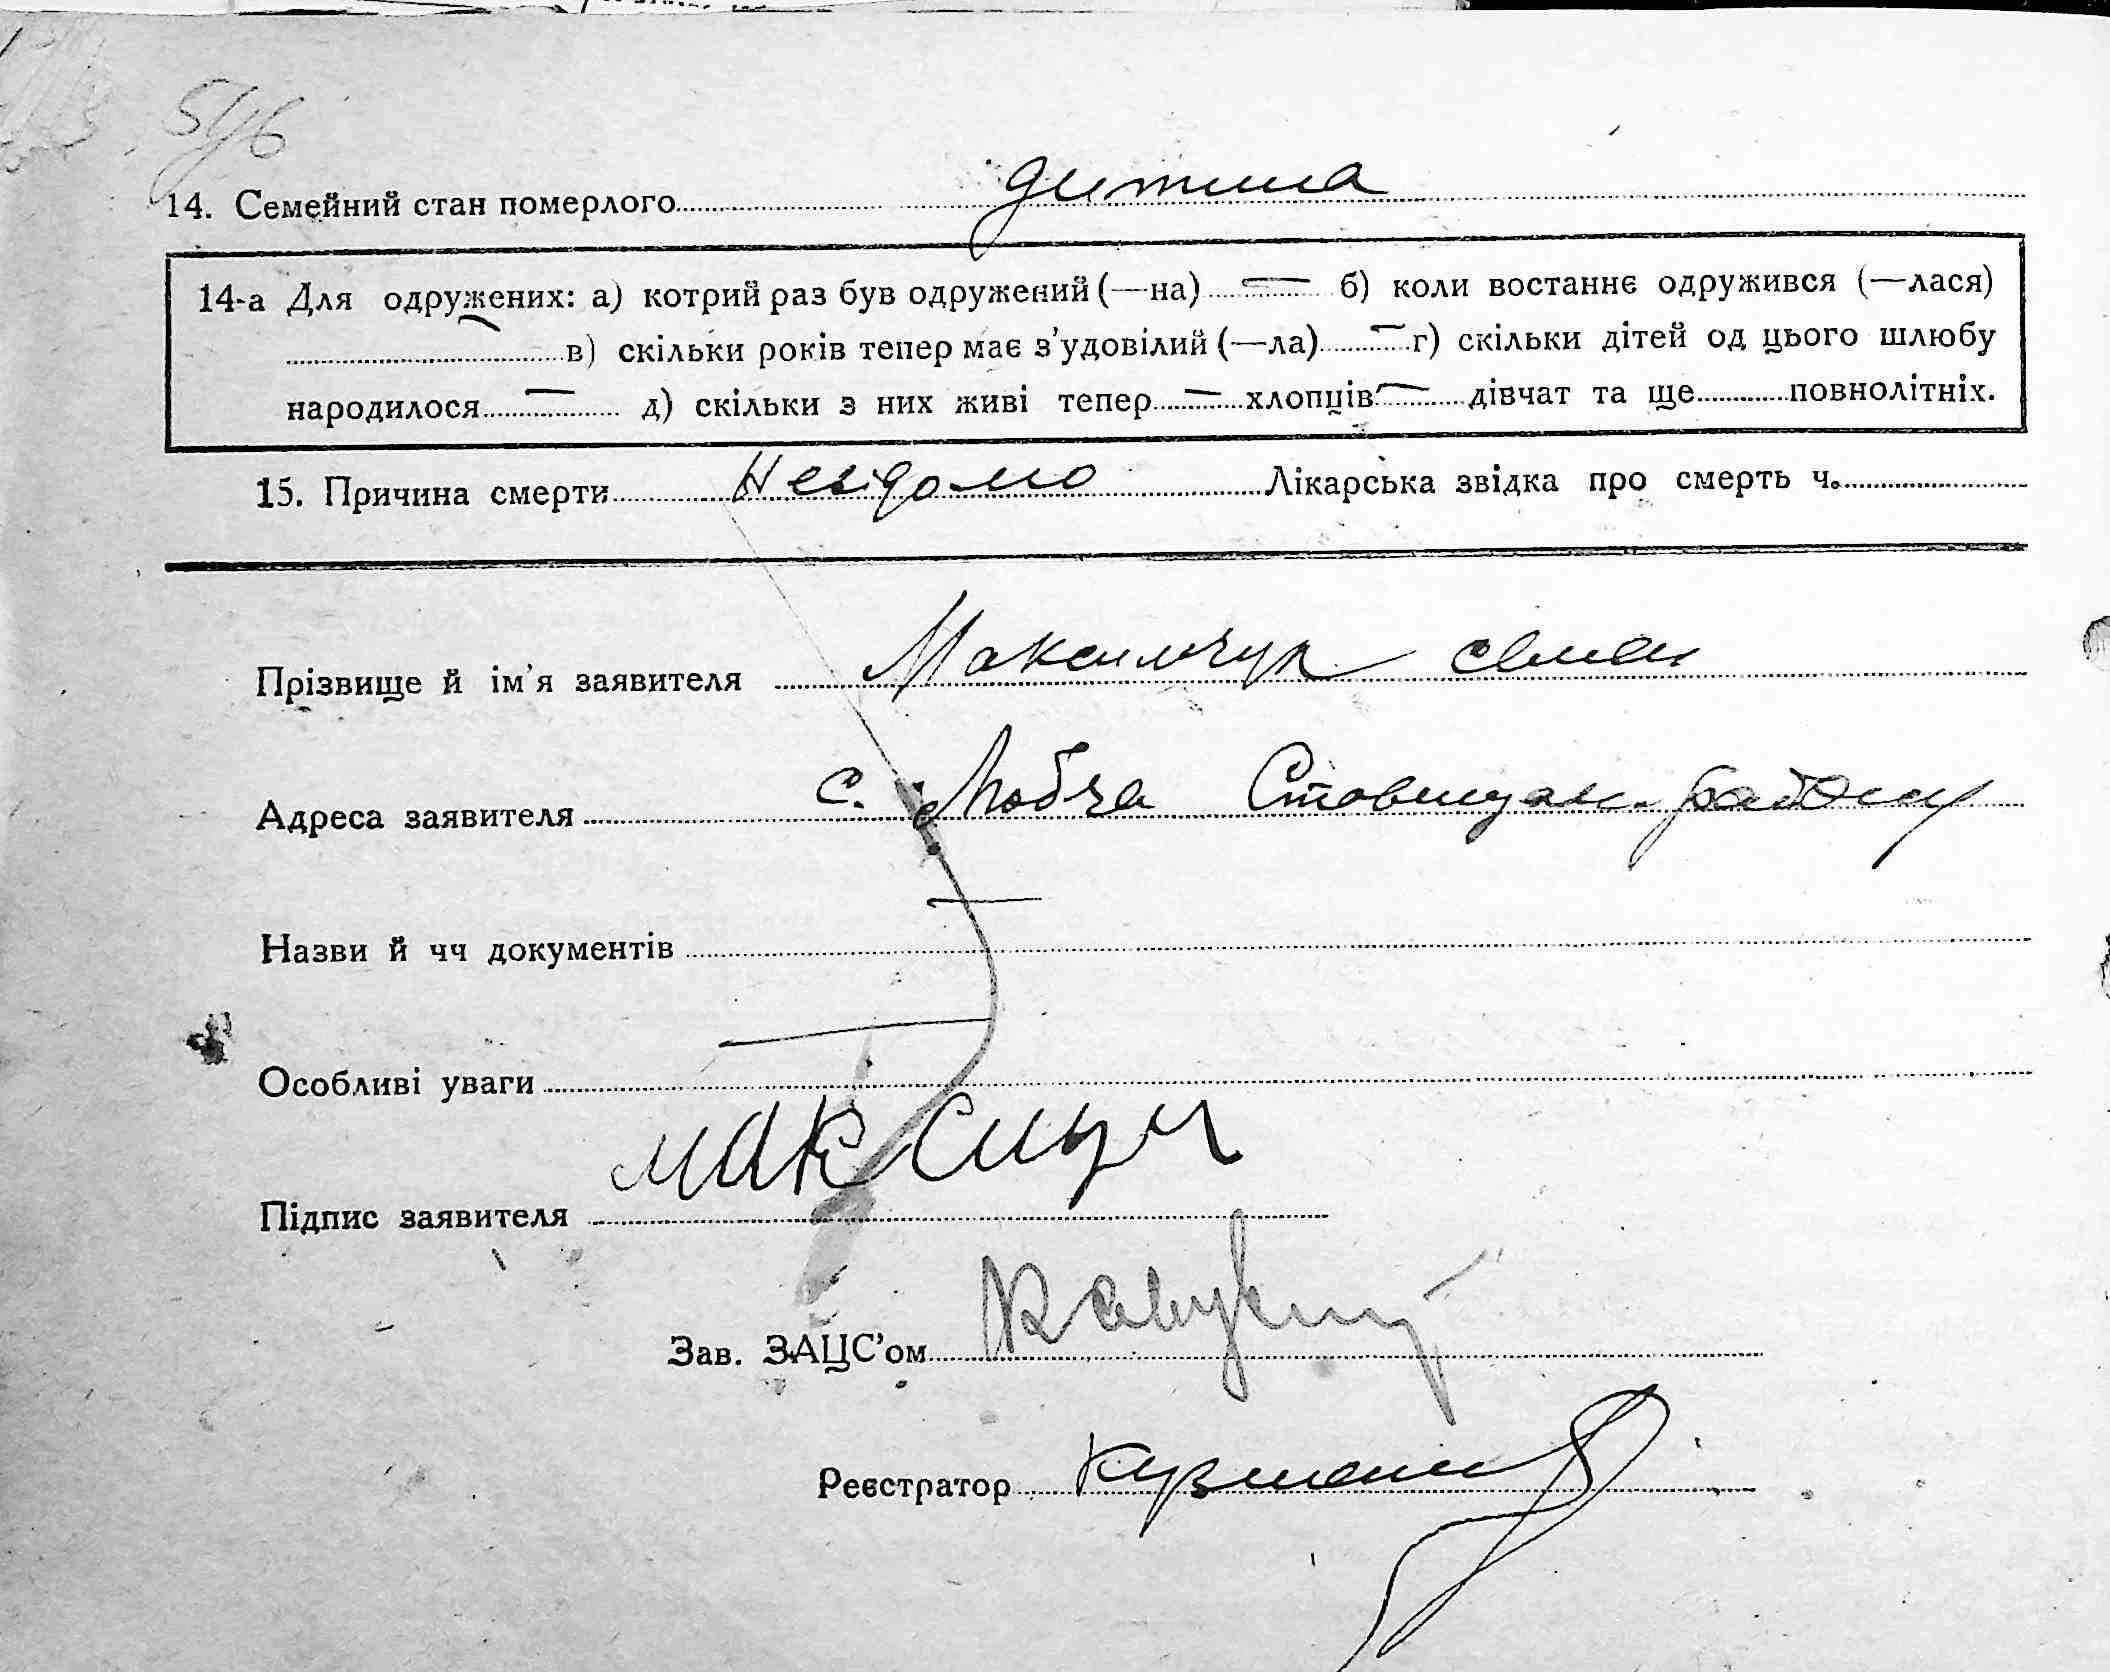 546
14. Семейний стан померлого дитина
14-а Для одружених: а) котрий раз був одружений (—на) — б) коли востаннє одружився (—лася)
— в) скільки років тепер має з’удовілий (—ла) — г) скільки дітей од цього шлюбу
народилося — д) скільки з них живі тепер — хлопців — дівчат та ще повнолітніх.
15. Причина смерти Невідомо Лікарська звідка про смерть ч.
Прізвище й ім’я заявителя Максимчук Семен
Адреса заявителя с. Любча Ставищан. району
Назви й чч документів —
Особливі уваги —
Підпис заявителя
Зав. ЗАЦС’ом
Реєстратор